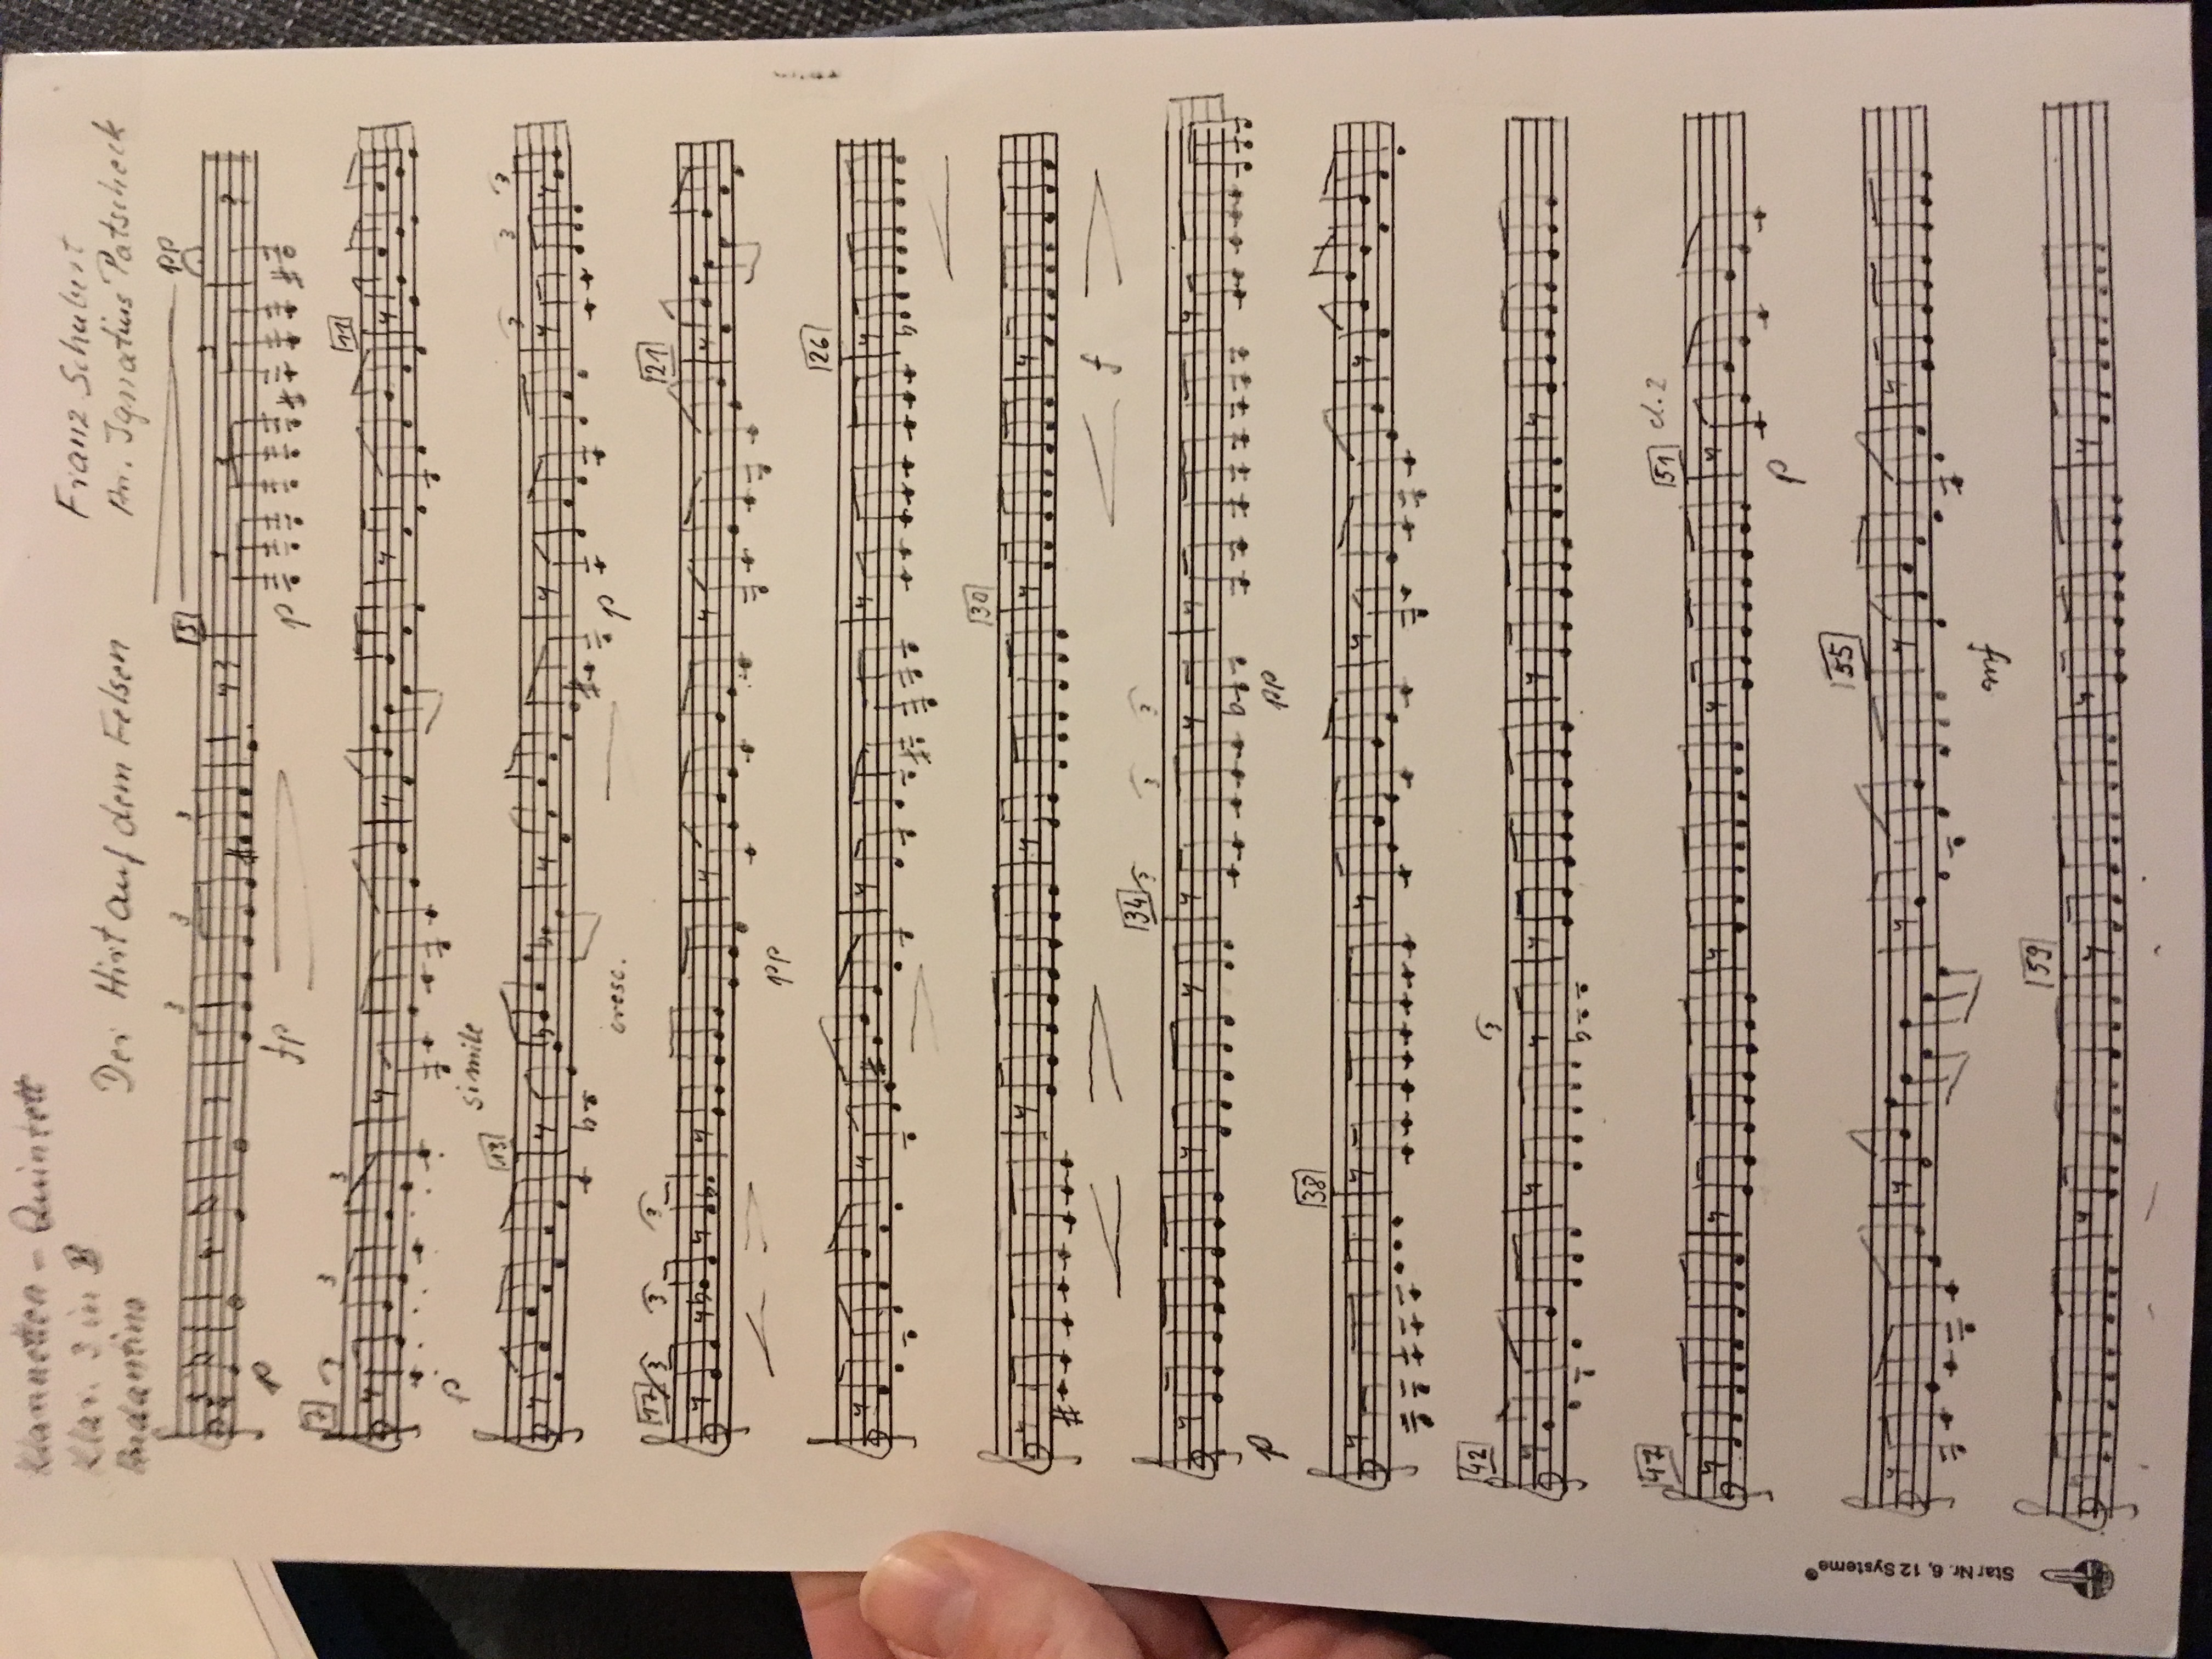 Klarinetten - Quintett
Klar. 3 in B
Andantino
Der Hirt auf dem Felsen
Franz Schubert
Arr. Ignatius Patscheck
3 3 3
5
3 3 3
pp
p
fp
p
7
3 3 3
11
p
simile
13
3 3 3
cresc.
p
17
3 3 3
21
pp
26
30
f
34
3 3 3
p
pp
38
42
3
47
51
cl. 2
p
55
mf
59
Star Nr. 6, 12 Systeme®